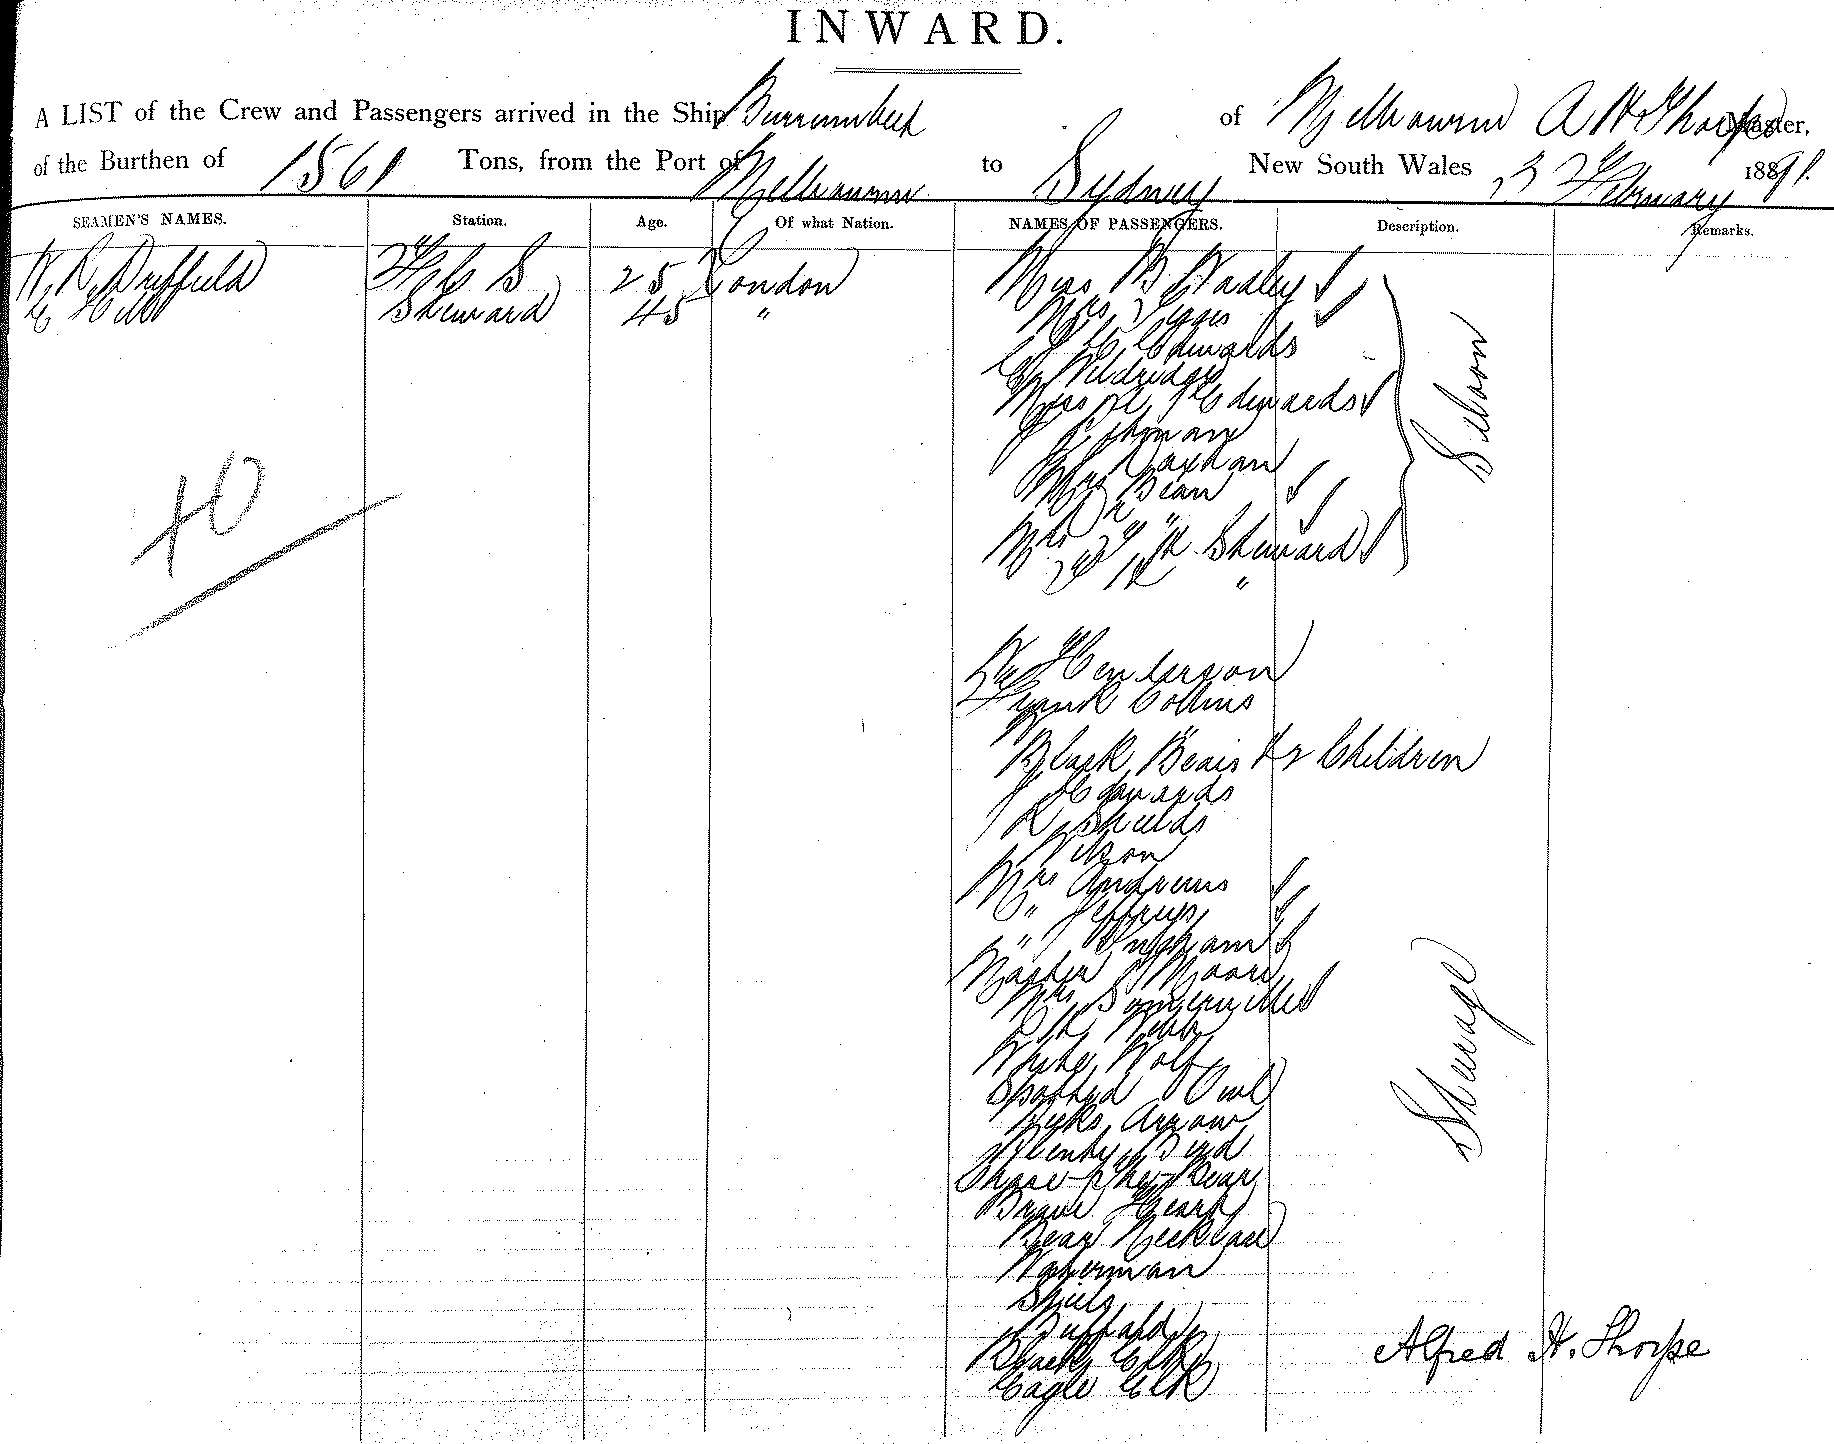 INWARD.
A LIST of the Crew and Passengers arrived in the Ship Burrumbeet of Melbourne A H Thorpe Master,
of the Burthen of 1561 Tons, from the Port of Melbourne to Sydney New South Wales 23 February 1891.
SEAMEN'S NAMES. Station. Age. Of what Nation. NAMES OF PASSENGERS. Description. Remarks.
W R Duffield F C S 25 London Miss B Wadley
C Hill Steward 45 " Mrs
Edwards
Mrs Edwards
Mrs
Mrs Bean
Dr "
Mrs F H Steward
F H "
Saloon
40
Henderson
Frank Collins
Black Bear & 2 Children
J Edwards
R Shields
Wilson
Mrs Andrews
" Jeffreys
" Ingham
Master Moore
Mrs Somerville
Webb
White Wolf
Spotted Owl
Arrow
Plenty Bird
Bear
Brave Heart
Bear Necklace
Waterman
Shiels
Buffalo
Black Elk
Eagle Elk
Steerage
Alfred H. Thorpe